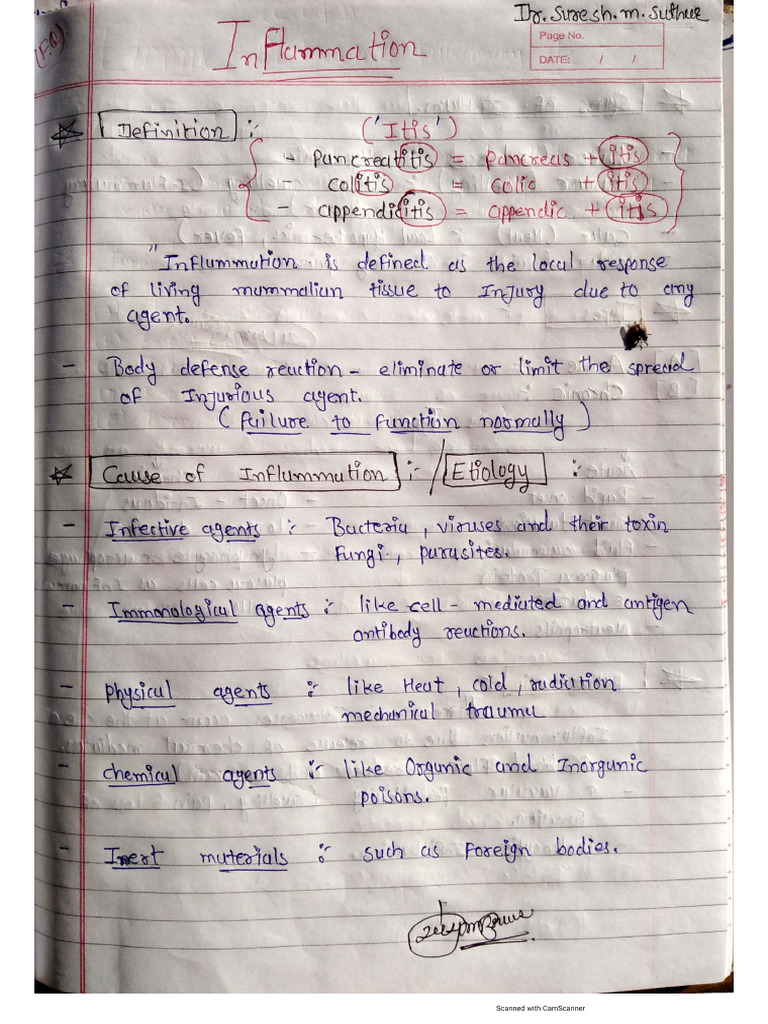 Dr. Suresh. m. Suthar
(F.Q)
Inflammation
Page No.
DATE: / /
Definition :- ('Itis')
- Pancreatitis = Pancreas + itis -
- colitis = colic + itis -
- appendicitis = appendic + itis -
"Inflammation is defined as the local response
of living mammalian tissue to Injury due to any
agent.
- Body defense reaction - eliminate or limit the spread
of Injurious agent.
(failure to function normally)
Cause of Inflammation :- / Etiology :-
- Infective agents :- Bacteria, viruses and their toxin
Fungi, parasites.
- Immonological agents :- like cell - mediated and antigen
antibody reactions.
- Physical agents :- like Heat, cold, radiation
mechanical trauma
- chemical agents :- like Organic and Inorganic
poisons.
- Inert materials :- such as Foreign bodies.
Scanned with CamScanner